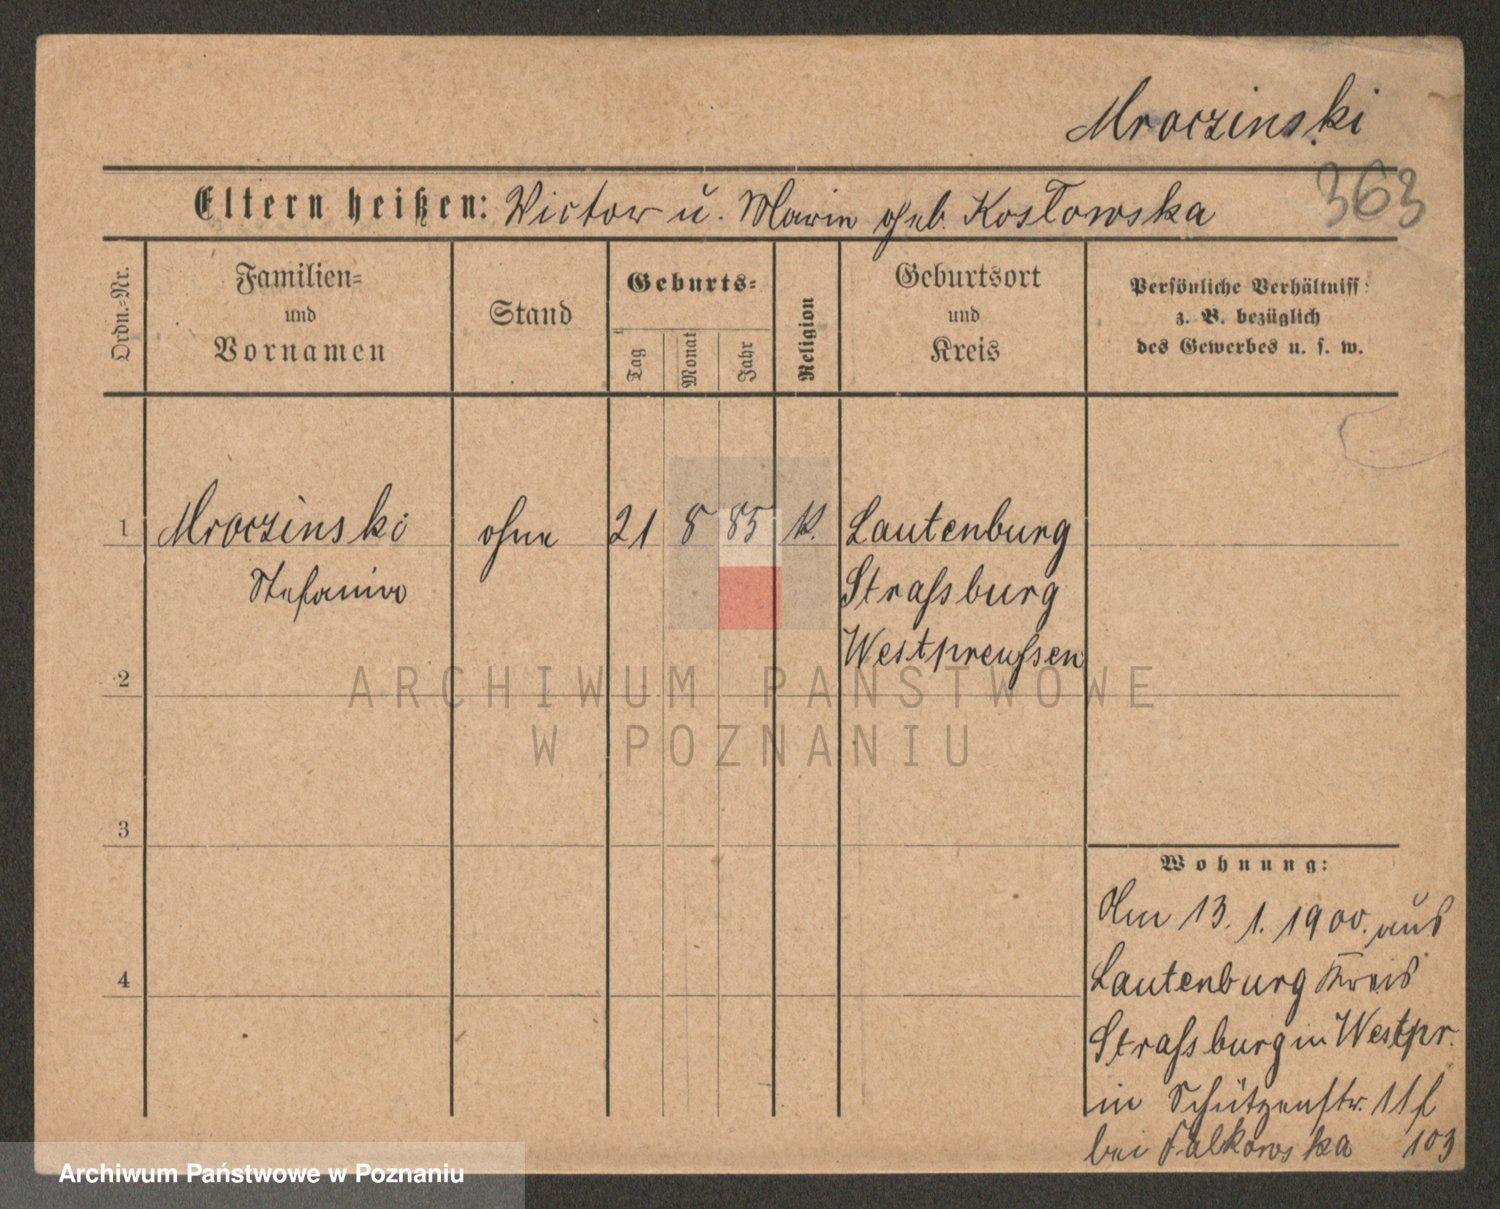 Mroczinski
363
Eltern heißen: Victor u. Marie geb. Kosłowska
Ordn.-Nr.
Familien-
und
Vornamen
Stand
Geburts-
Tag
Monat
Jahr
Religion
Geburtsort
und
Kreis
Persönliche Verhältniss
z. B. bezüglich
des Gewerbes u. s. w.
1 Mroczinski ohne 21 8 85 K. Lautenburg
Stefania Straßburg
Westpreußen
2
3
4
Wohnung:
Am 13. 1. 1900. aus
Lautenburg Kreis
Straßburg in Westpr.
in Schützenstr. 11
bei Falkowska 103
ARCHIWUM PAŃSTWOWE
W POZNANIU
Archiwum Państwowe w Poznaniu